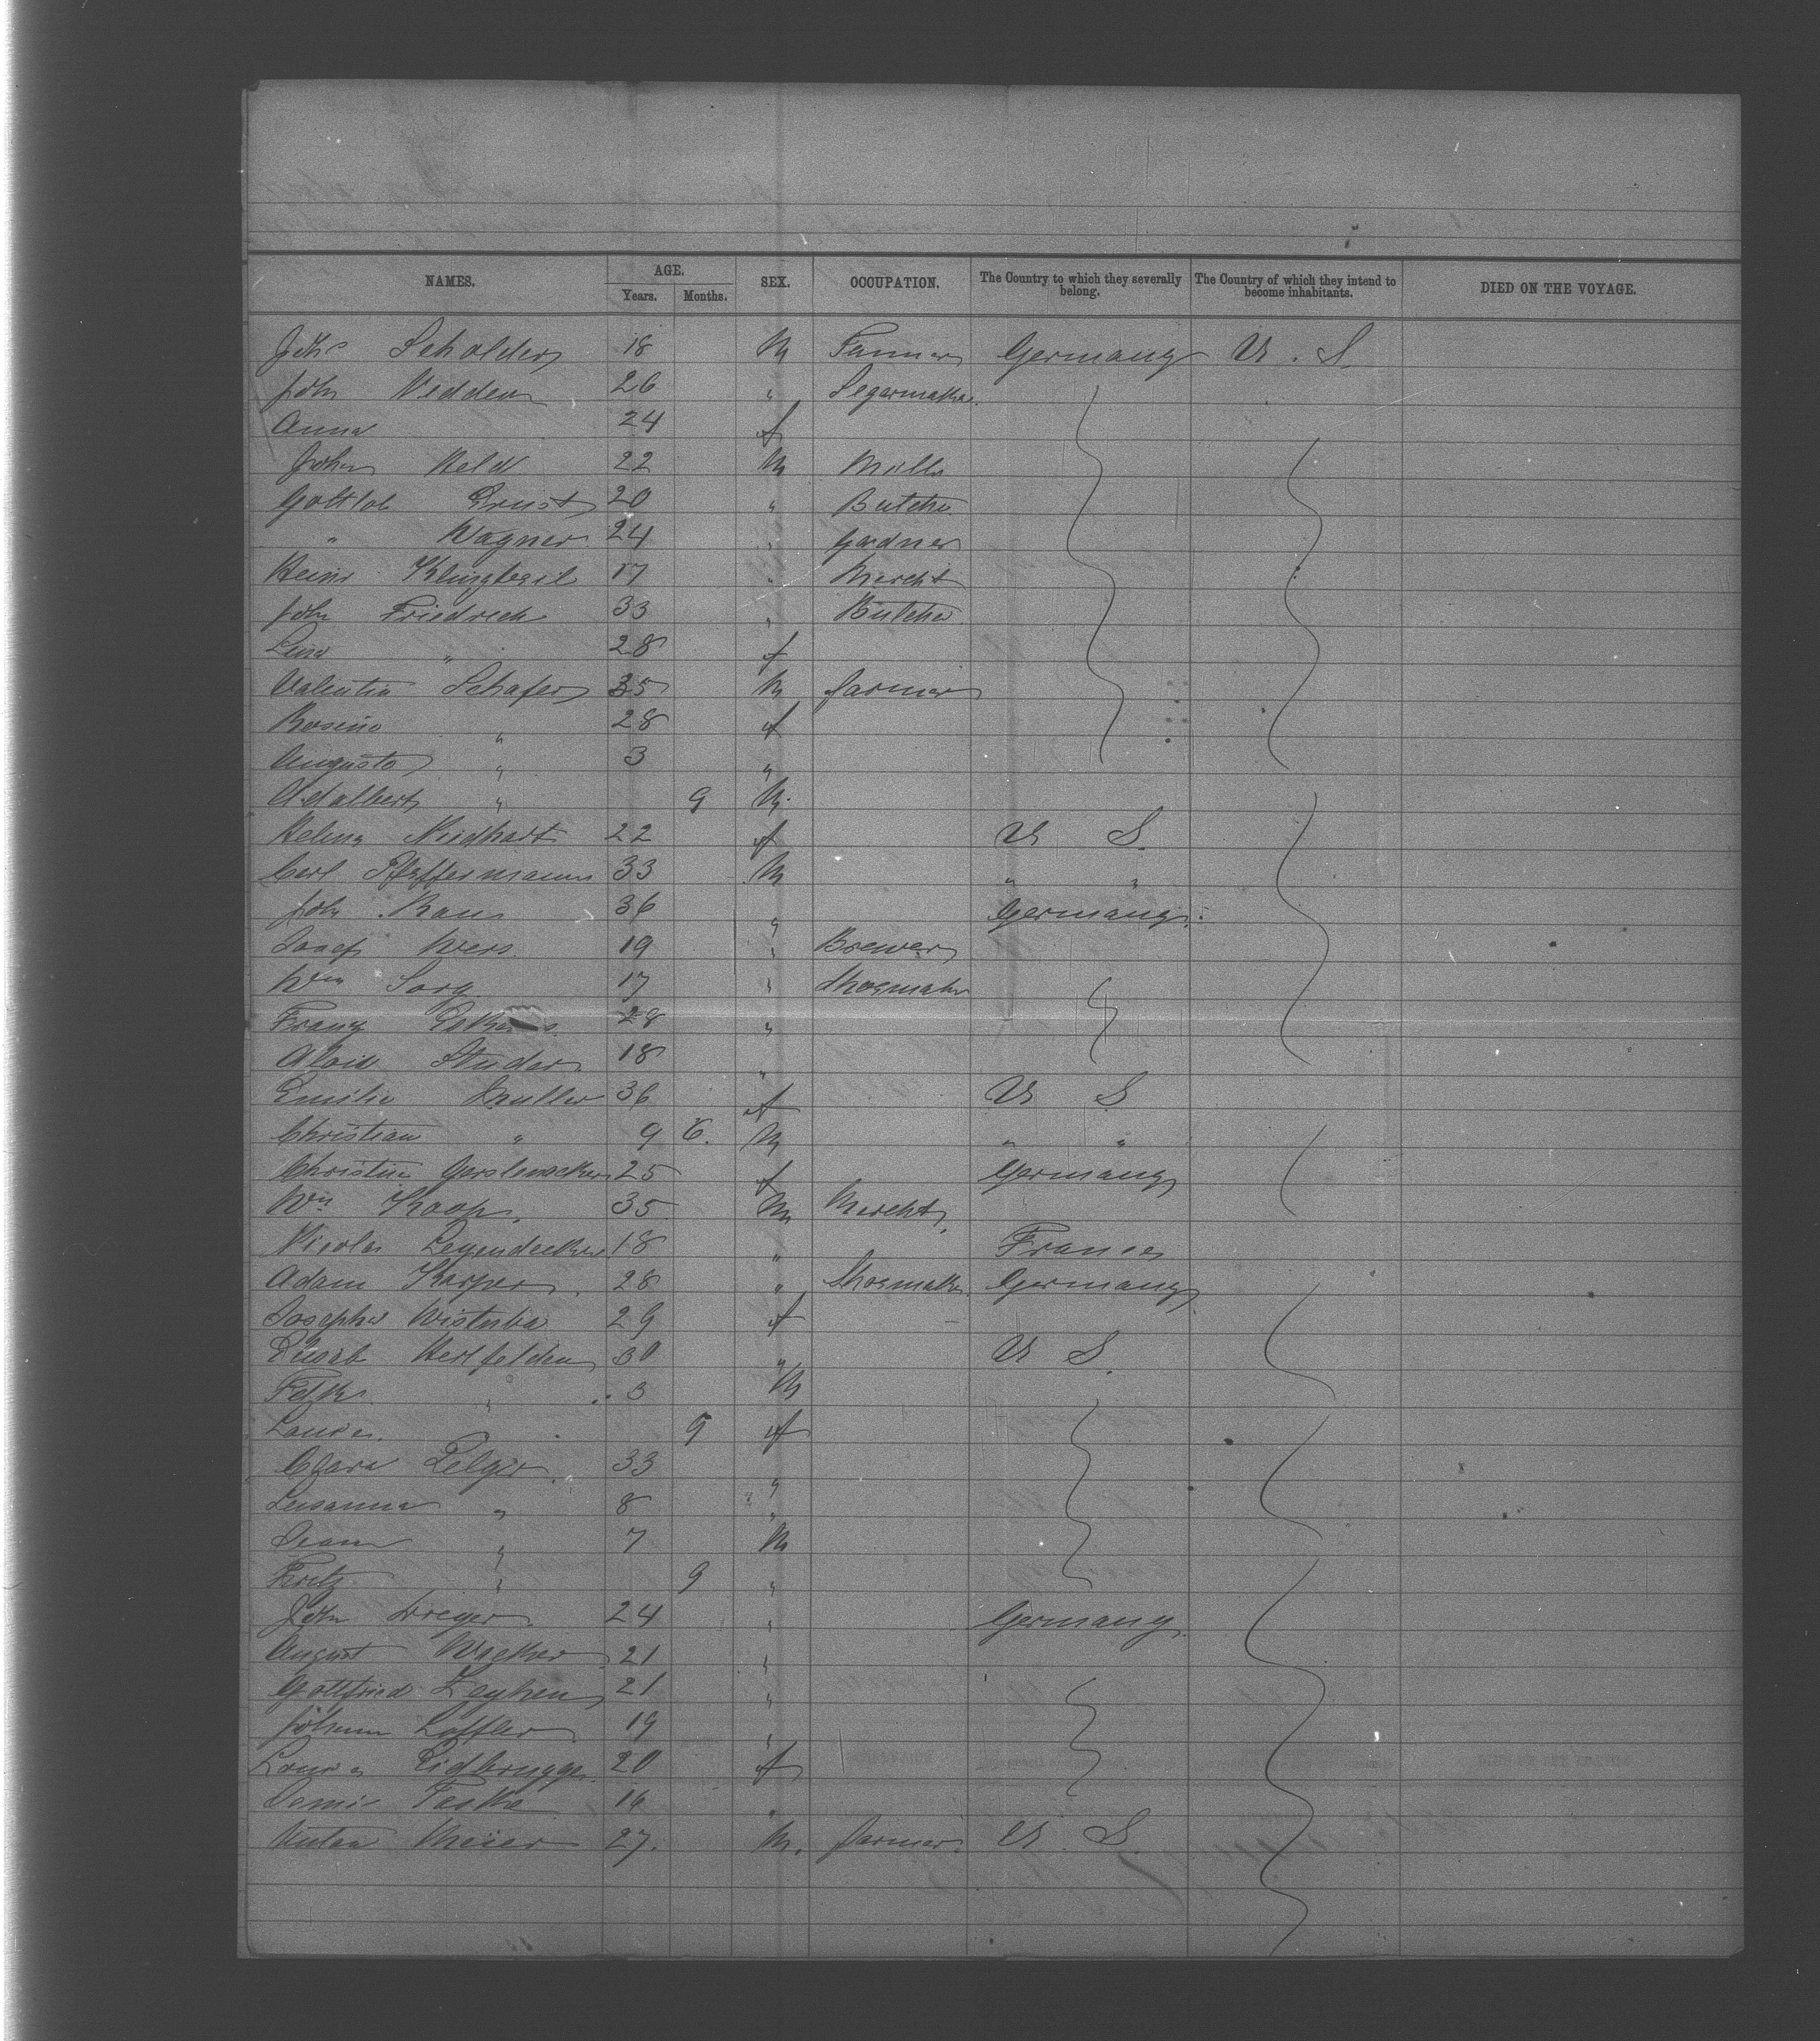 NAMES. AGE. SEX. OCCUPATION. The Country to which they severally belong. The Country of which they intend to become inhabitants. DIED ON THE VOYAGE.
Years. Months.
Joh. Scholder 18 M Farmer Germany U. S.
John Vedder 26 " Segarmaker
Anna 24 f
John Held 22 M Miller
Gottlob Ernst 20 " Butcher
" Wagner 24 " Gardner
Heinr Klingbeil 17 " Mercht
John Friedrich 33 " Butcher
Lina " 28 f
Valentin Schafer 35 M farmer
Rosine " 28 f
Augusta " 3 "
Adalbert " 9 M
Helena Niedhart 22 f U S.
Carl Pfeffermann 33 M " "
John Rau 36 " Germany
Josef Wers 19 " Brewer
Wm Sorg 17 " Shoemaker
Franz 28 "
Alois Studer 18 "
Emilie Muller 36 f U S
Christian " 9 6. M " "
Christine 25 f Germany
Wm Knoop 35 M Mercht
Nicolas Legendecker 18 " France
Adam Karper 28 " Shoemaker Germany
Josepha Wistuba 29 f
Elisab Herlfelder 30 " U S.
Felix " 3 M
Laura 9 f
Clara Pelger 33 "
Susanna " 8 "
Jean " 7 M
Fritz " 9 "
John Dreyer 24 " Germany
August Wacker 21 "
Gottfried Zeyhen 21 "
Johann Loffler 19 "
Louisa Eidbrugge 20 f
Taska 16 "
Meier 27. M. farmer U S.